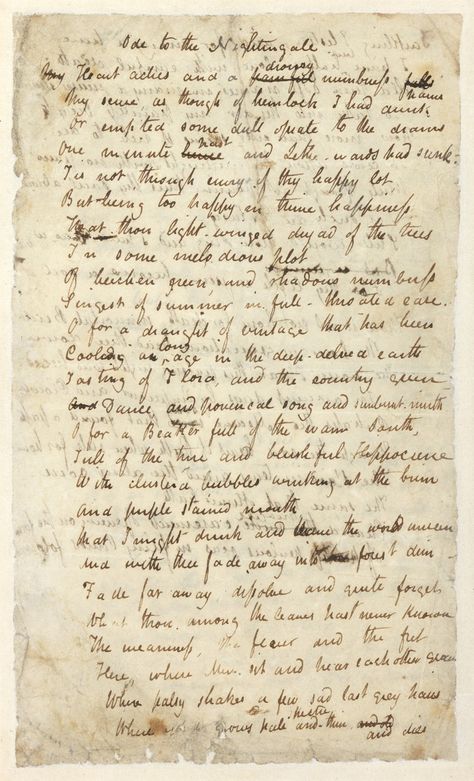 Ode to the Nightingale
My Heart aches and a drowsy painful numbness falls pains
My sense as though of hemlock I had drunk
Or emptied some dull opiate to the drains
One minute hence past and Lethe-wards had sunk-
Tis not through envy of thy happy lot,
But being too happy in thine happiness
That thou light-winged dryad of the trees
In some melodious plot
Of beechen green and shadows numberless
Singest of summer in full-throated ease.
O for a draught of vintage that has been
Cooling an long age in the deep-delved earth
Tasting of Flora, and the country green
And Dance, and provencal song and sunburnt mirth
O for a Beaker full of the warm South,
Full of the true and blushful Hippocrene
With cluster'd bubbles winking at the brim
and purple stained mouth
That I might drink and leave the world unseen
And with thee fade away into the forest dim-
Fade far away dissolve and quite forget
What thou among the leaves hast never known
The weariness, the fever and the fret
Here, where Men sit and hear each other groan
Where palsy shakes a few sad last grey hairs
Where grows pale and thin and old and dies